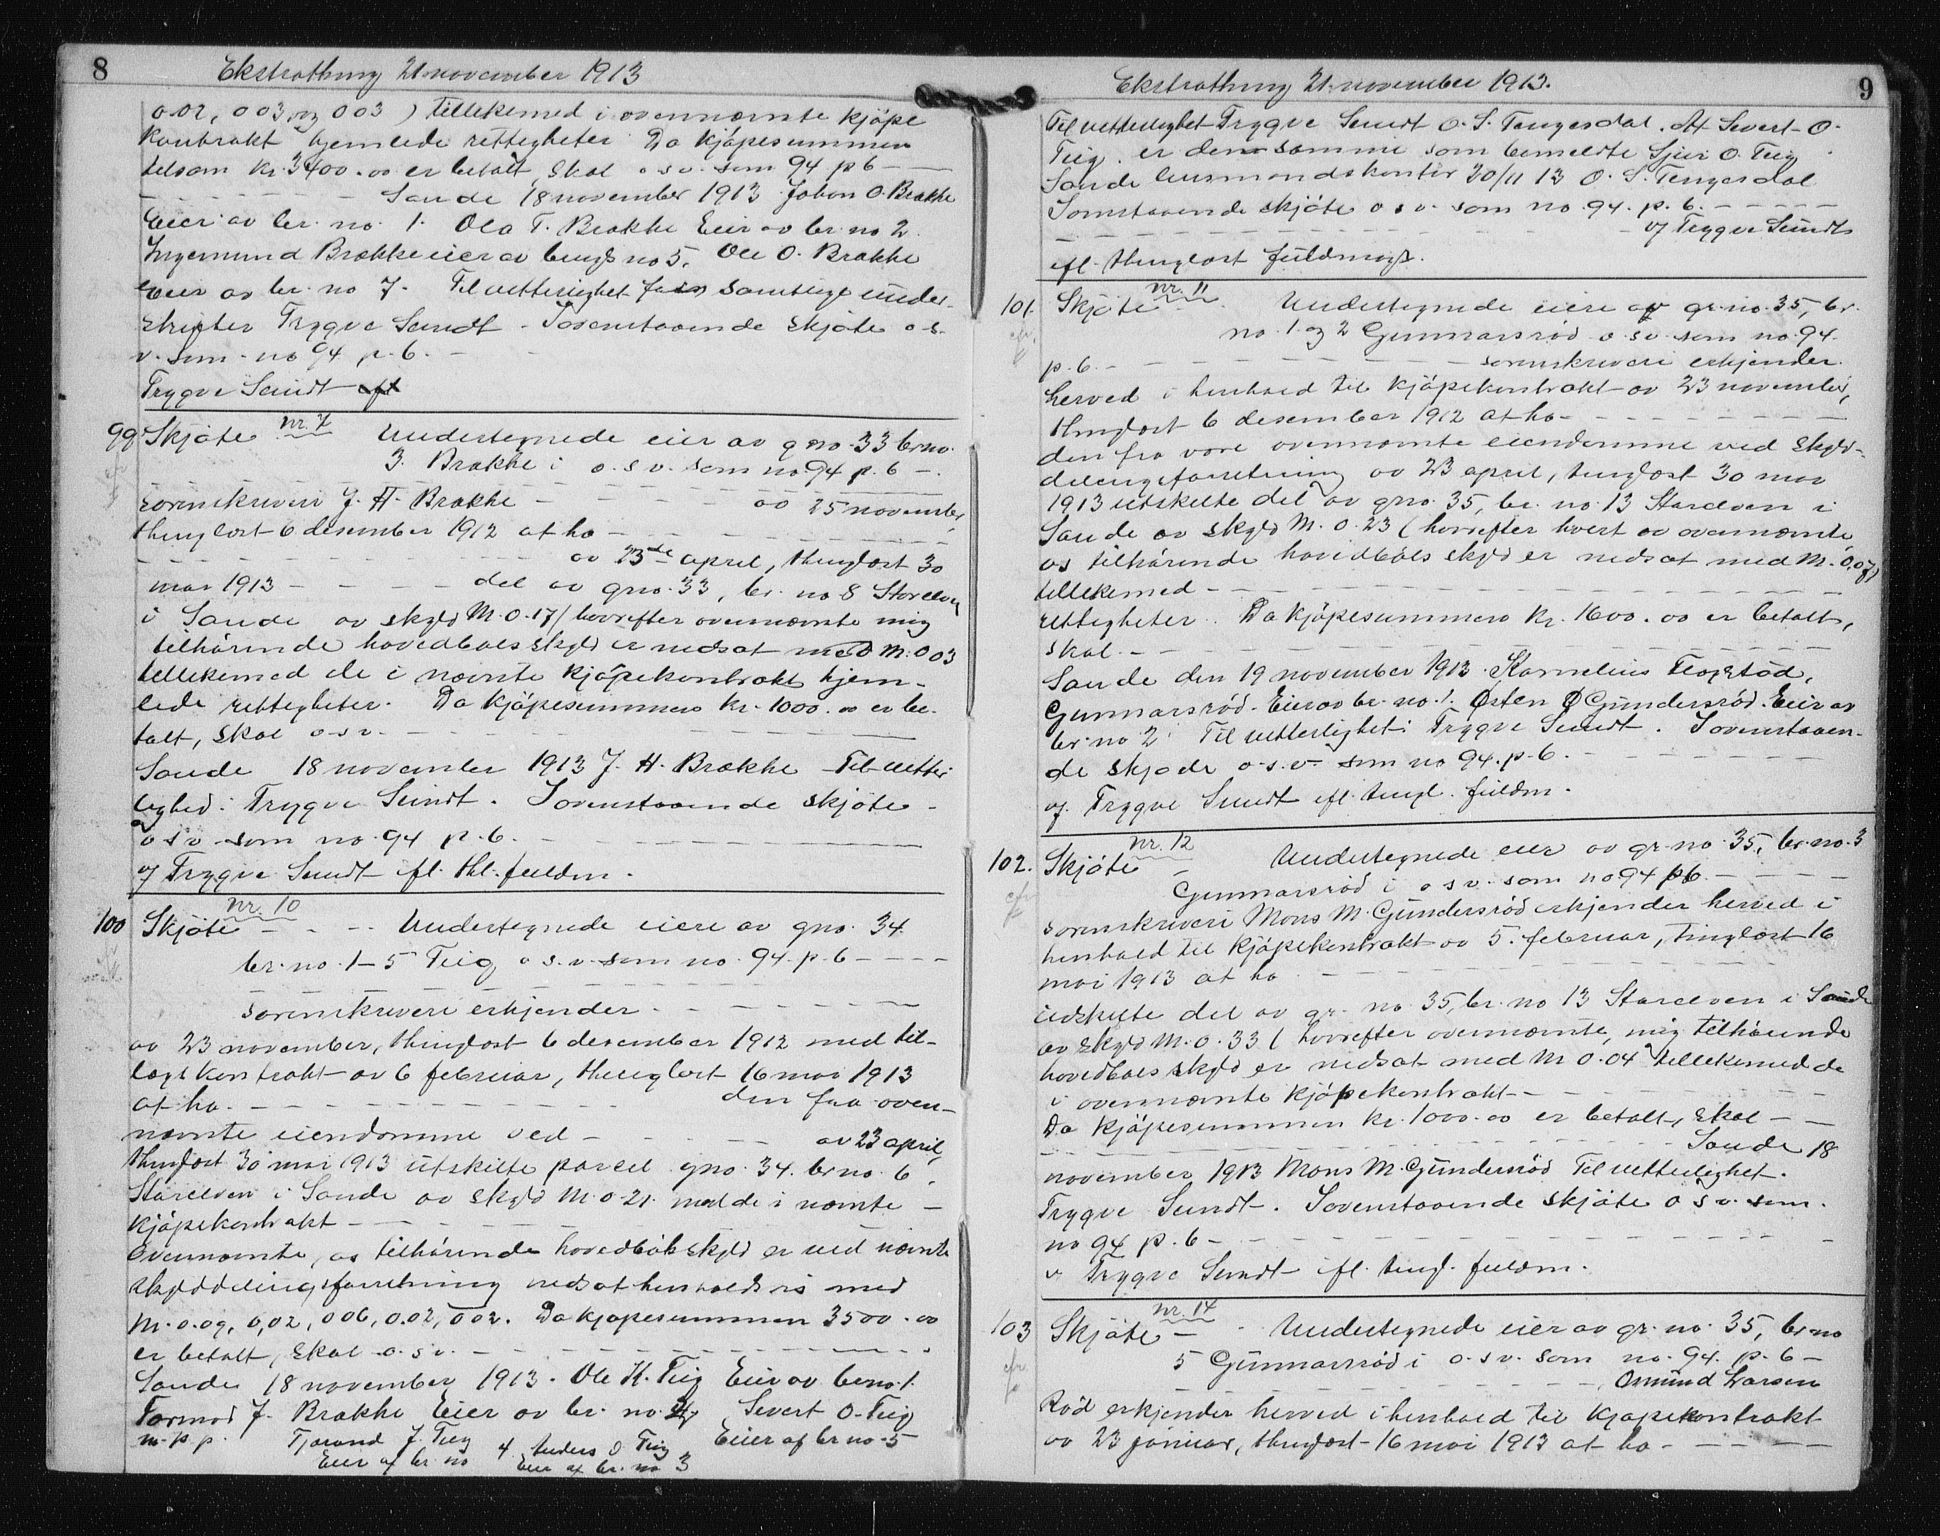 8
Ekstrathing 21 november 1913
0.02, 003, og 003 ) tillekemed i ovennævnte kjøpe
kontrakt hjemlede rettigheter Da kjøpesummen
tilsam kr. 3400.00 er betalt, skal o s v. som 94 p 6 —
— — — Sande 18 november 1913 Johan O. Brække
Eier av br. no. 1. Ola T. Brække Eier av br. no 2.
Ingemund Brække eier av brugs no 5. Ole O. Brække
Eier av br. no 7. Til vetterlighet for samtlige under-
skrifter Trygve Sundt - Sovenstaaende skjøte o-s-
v. som - no 94 p. 6. —
Trygve Sundt
99. Skjøte Nr. 7 Undertegnede eier av g no. 33 br no.
3. Brække i o. s v. som no 94 p. 6 —.
sorenskriveri J. H. Brække — — — av 25 november,
thinglæst 6 desember 1912 at ha — — —
— — — av 23de april, thinglæst 30
mai 1913 — — — del av gno. 33, br. no 8 Storelven
i Sande av skyld M. 0.17 / hvorefter ovennævnte mig
tilhørende hovedbøls skyld er nedsat med M. 0 03
tillekemed de i nævnte kjøpekontrakt hjem-
lede rettigheter. Da kjøpesummen kr. 1000.00 er be-
talt, skal o s v. — — —
Sande 18 november 1913 J. H. Brække Til vetter-
lighed: Trygve Sundt. Sovenstaaende skjøte -
o s v - som no. 94 p. 6. — — —
v/ Trygve Sundt efl. thl. fuldm.
100 Skjøte Nr. 10 — - - - Undertegnede eiere av gno. 34.
br. no. 1 - 5 Tiig o s. v. som no. 94. p. 6 — — —
sorenskriveri erkjender. — — —
av 23 november, thinglæst 6 desember 1912 med til-
lægskontrakt av 6 februar, thinglæst 16 mai 1913
at ha. — — — den fra oven-
nævnte eiendomme ved — — — av 23 april,
thinglæst 30 mai 1913 utskilte parcel gno. 34. br no. 6,
Storelven i Sande av skyld M. 0.21. med de i nævnte —
kjøpekontrakt — — —
Ovennævnte, os tilhørende hovedbøls skyld er ved nævnte
skylddelingsforretning nedsat henholdsvis med
M. 0.09, 0,02, 006, 0.02, 002. Da kjøpesummen 3500.00
er betalt, skal o. s v. — — —
Sande 18 november 1913. Ole H. Tiig Eier av br no. 1.
Tormod J. Brække Eier av br. no. 2 Sivert O. Tiig
m. p. p. Tjorand J. Tiig 4. Anders O Tiig Eier af br no. 5
Eier af br. no Eier af br. no 3
9
Ekstrathing 21. november 1913.
Til vetterlighet Trygve Sundt O. S. Tengesdal. At Sivert O.
Tiig. er den samme som bemeldte Sjur O. Tiig
Sande lensmandskontor 20/11 13 O. S. Tengesdal
Somstaaende skjøte o s v. som no. 94. p. 6. — — —
— — — v/ Trygve Sundt
efl. thinglæst fuldmagt.
101. Skjøte Nr. 11 Undertegnede eiere av gr. no. 35, br.
no. 1 og 2 Gunnarsrød o. s v. som no. 94.
p. 6. — — — sorenskriveri erkjender.
herved i henhold til kjøpekontrakt av 23 november,
thinglæst 6 desember 1912 at ha — — —
den fra vore ovennævnte eiendomme ved skyld-
delingsforretning av 23 april, tinglæst 30 mai
1913 utskilte del av gno. 35, br. no 13 Storelven i
Sande av skyld M. 0. 23 ( hvorefter hvert av ovennævnte
os tilhørende hovedbøls skyld er nedsat med M. 0,07)
tillekemed — — —
rettigheter. Da kjøpesummen kr. 1600.00 er betalt,
skal. — — —
Sande den 19 november 1913. Kornelius Flogstød,
Gunnarsrød. Eier av br. no. 1. Østen Ø Gundersrød. Eier av
br. no 2. Til vetterlighet: Trygve Sundt. Sovenstaaen-
de skjøde o. s. v. som no 94. p. 6. — — —
v/ Trygve Sundt efl. tingl. fuldm.
102. Skjøte Nr. 12 Undertegnede eier av gr. no. 35, br. no. 3
Gunnarsrød i o s v. som no 94 p 6. — — —
sorenskriveri Mons M. Gundersrød erkjender herved i
henhold til kjøpekontrakt av 5. februar, tinglæst 16
mai 1913 at ha — — —
utskilte del av gr. no 35, br. no 13 Storelven i Sande
av skyld M. 0. 33 ( hvorefter ovennævnte, mig tilhørende
hovedbøls skyld er nedsat med M 0.04 tillekemed de
i ovennævnte kjøpekontrakt — — —
Da kjøpesummen kr. 1000.00 er betalt, skal — —
— — — Sande 18
november 1913 Mons M. Gundersrød Til vetterlighet.
Trygve Sundt. Sovenstaaende skjøte o s v. som.
no 94 p. 6 — — —
v. Trygve Sundt efl. tingl. fuldm.
103 Skjøte — Nr. 14 Undertegnede eier av gr. no. 35, br no
5 Gunnarsrød i o. s v. som no. 94. p. 6 —
— — — Osmund Larsen
Rød erkjender herved i henhold til kjøpekontrakt
av 23 januar, thinglæst 16 mai 1913 at ha — — —